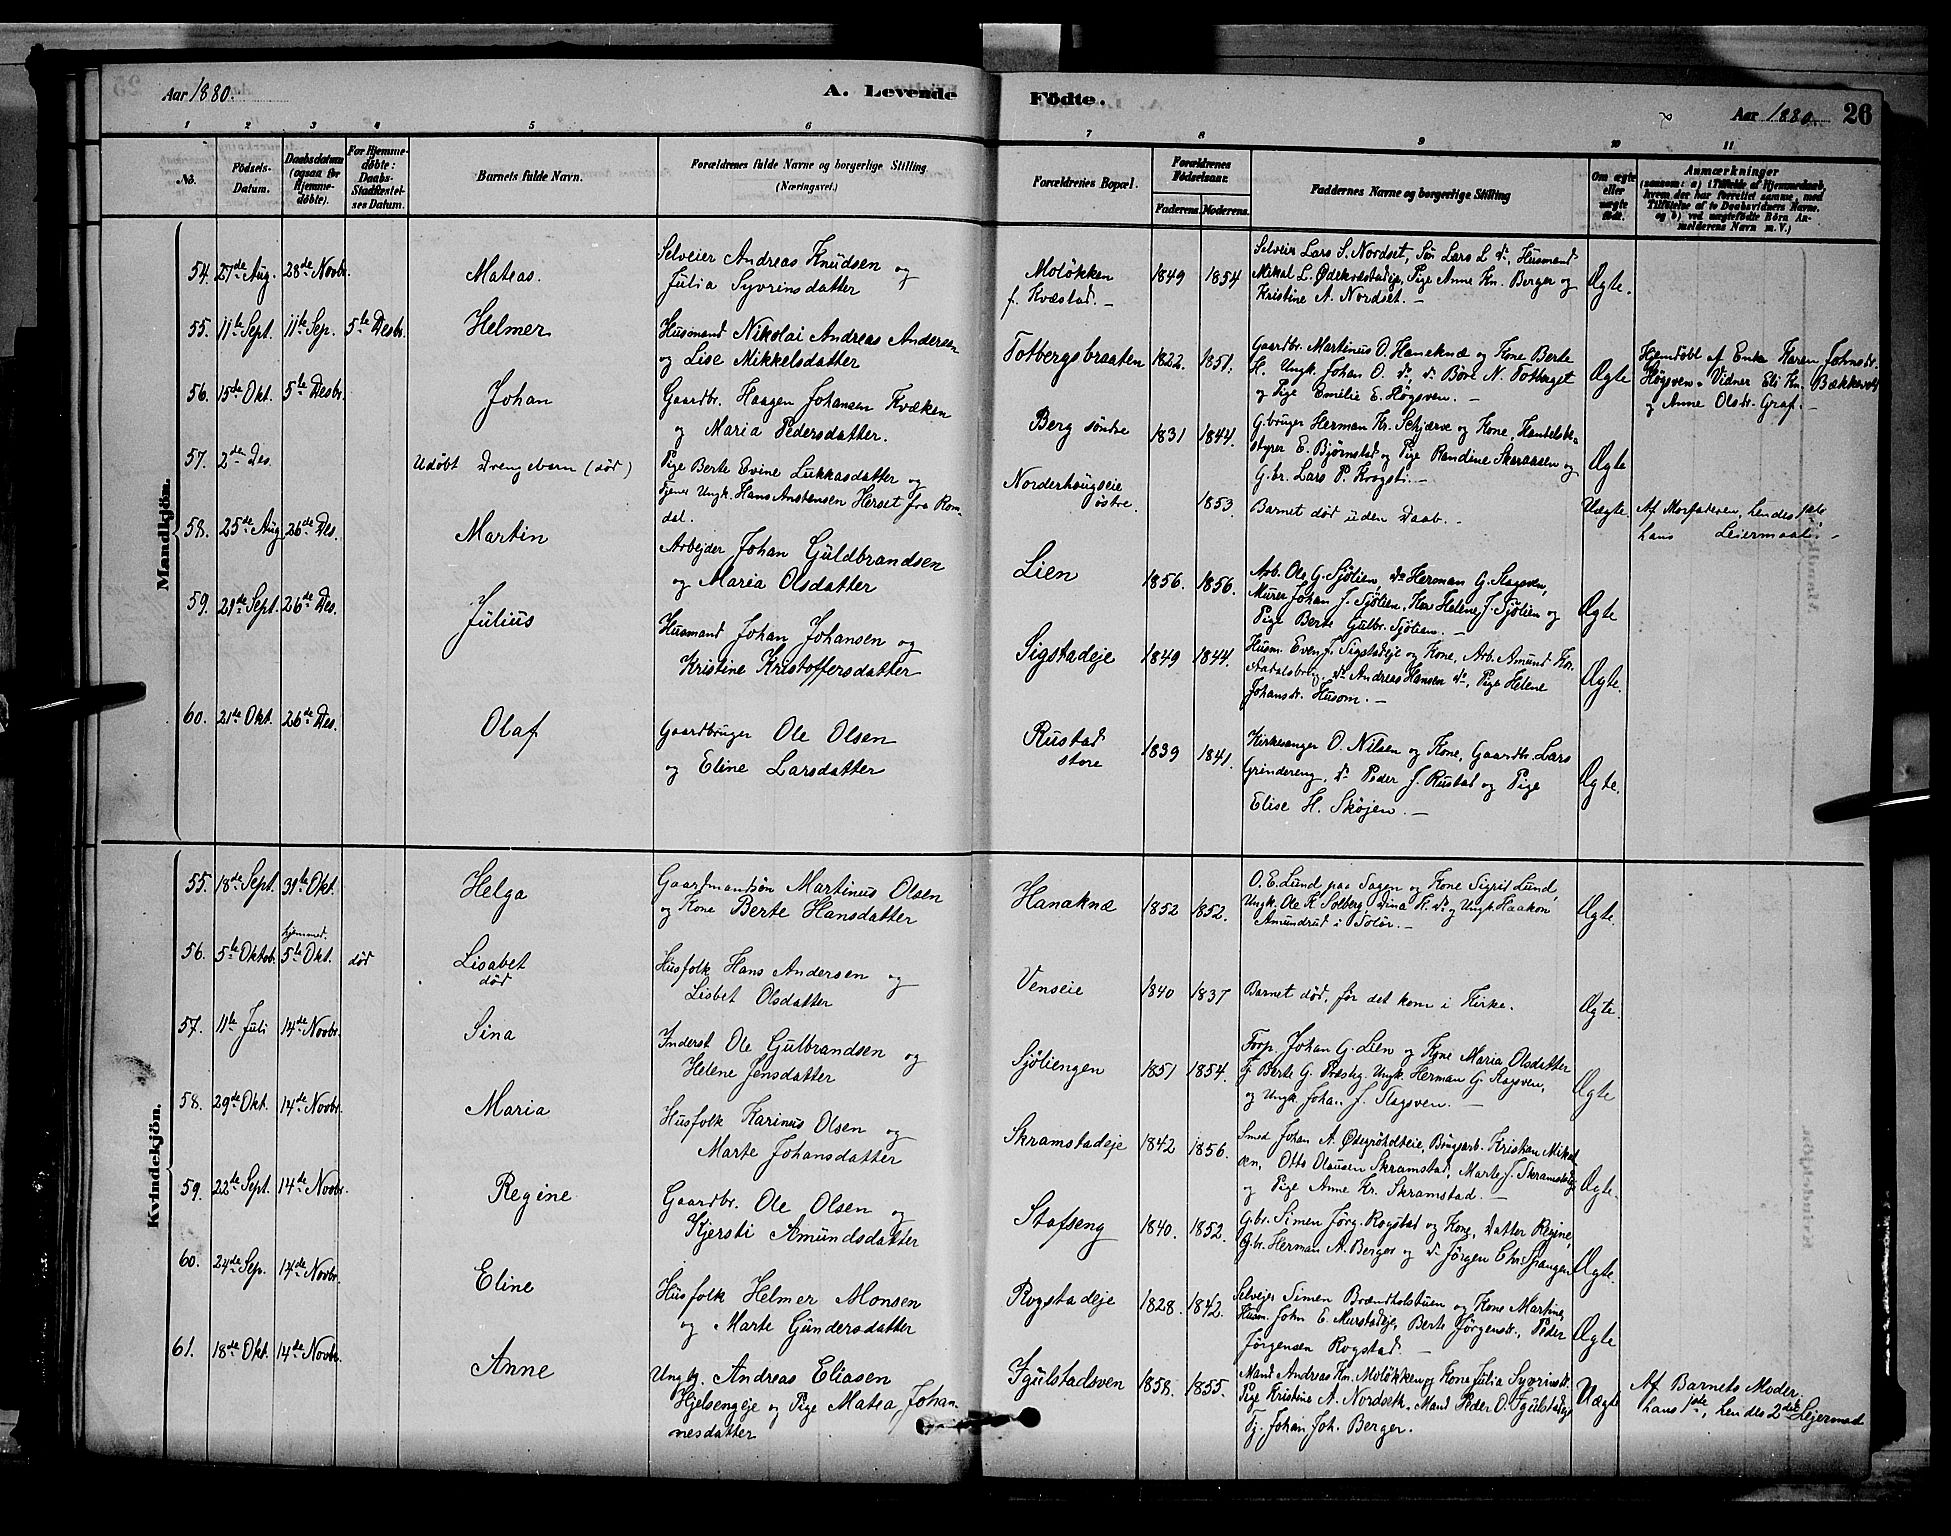 Aar 1880.
A. Levende
Födte.
Aar 1880.
26
1 2 3 4 5 6 7 8 9 10 11
No.
Födsels-
Datum.
Daabsdatum
(ogsaa for
Hjemme-
døbte).
For Hjemme-
døbte:
Daabs-
Stadfæstel-
ses Datum.
Barnets fulde Navn.
Forældrenes fulde Navne og borgerlige Stilling
(Næringsvei.)
Forældrenes Bopæl.
Forældrenes
Födselsaar.
Faderens. Moderens.
Faddernes Navne og borgerlige Stilling
Om ægte
eller
uægte
født.
Anmærkninger
(saasom: a) i Tilfælde af Hjemmedaab,
hvem der har forrettet samme, med
Tilføielse af to Daabsvidners Navne.
og b) ved uægtefødte Börn An-
melderens Navn m. V.)
Mandkjön.
54. 27de Aug. 28de Novbr. Mateas.
Selveier Andreas Knudsen og
Julia Syvrinsdatter
Moløkken
f. Kvæstad. —
1849 1854
Selveier Lars S. Nordset, Søn Lars L do, Husmand
Mikal L. Ødekvæstadeje, Pige Anne Kn. Berger og
Kristine A. Nordset. —
Ægte.
55. 11te Sept. 11te Sep. 5te Desbr. Helmer
Husmand Nikolai Andreas Andersen
og Lise Mikkelsdatter
Totbergsbraaten 1822. 1851.
Gaardbr. Martinus O. Haneknæ og Kone Berte
H. Ungk. Johan O. do. do Børe N. Totberget
og Pige Emelie E. Høgsven. —
Ægte
Hjemdøbt af Enke Karen Johnsdr.
Høgsven. Vidner Eli Kn. Bækkevold
og Anne Olsdr. Graf. —
56. 15de Okt. 5te Desbr. Johan
Gaardbr. Haagen Johansen Kvæken
og Maria Pedersdatter.
Berg søndre 1831 1844.
G.bruger Herman Kr. Schjærve og Kone, Handelsbe-
styrer E. Bjørnstad og Pige Randine Skaraasen og
G.br. Lars P. Krogsti. —
Ægte
57. 2den Des. Udøbt Drengebarn (død)
Pige Berte Evine Lukkasdatter og
Tjener Ungk. Hans Anstensen Herset fra Rom-
dal.
Norderhougseie
østre.
1853.
Barnet død uden Daab. —
Uægte.
Af Morfaderen, hendes 1ste
hans Leiermaal. —
58. 25de Aug 26de Des. Martin
Arbejder Johan Guldbrandsen
og Maria Olsdatter
Lien 1856. 1856.
Arb. Ole G. Sjølien, do Herman G. Slagsven,
Murer Johan J. Sjølien, Kone Helene J. Sjølien og
Pige Berte Gulbr. Sjølien. —
Ægte
59. 29de Sept. 26de Des. Julius
Husmand Johan Johansen og
Kristine Kristoffersdatter
Sigstadeje 1849 1844.
Husm. Even J. Sigstadeje og Kone, Arb. Amund Kr.
Aadalsborg, do Andreas Hansen do, Pige Helene
Johansdr. Husom. —
Ægte.
60. 21de Okt. 26de Des. Olaf
Gaardbruger Ole Olsen
og Eline Larsdatter
Rustad
store
1839 1841.
Kirkesanger O. Nilsen og Kone, Gaardbr. Lars
Grindereng, do Peder J. Rustad og Pige
Elise H. Skøjen. —
Ægte.
Kvindekjön.
55. 18de Sept. 31te Okt. Helga
Gaardmandsøn Martinus Olsen
og Kone Berte Hansdatter
Hanaknæ 1852 1852.
O. E. Lund paa Sagen og Kone Sigrid Lund,
Ungk. Ole K. Solberg Dina H. do og Ungk. Haakon
Amundrud i Solør. —
Ægte.
56. 5te Oktob. hjemmed. 5te Okt. død Lisabet
død
Husfolk Hans Andersen og
Lisbet Olsdatter
Venseie 1840 1837
Barnet død, før det kom i Kirke.
Ægte.
57. 11te Juli 14de Novbr. Sina
Inderst Ole Gulbrandsen og
Helene Jensdatter
Sjøliengen 1851 1854.
Forp. Johan G. Lien og Kone Maria Olsdatter
Tj Berte G. Præstg. Ungk. Herman G. Slagsven,
og Ungk. Johan J. Slagsven. —
Ægte
58. 29de Okt. 14de Novbr. Maria
Husfolk Karinus Olsen og
Marte Johansdatter
Skramstadeje 1842 1856.
Smed Johan A. Ødegrøholteie, Brugsarb. Kristian Mikal-
sen, Otto Olausen Skramstad, Marte J. Skramstadeje
og Pige Anne Kr. Skramstad. —
Ægte.
59. 22te Sept. 14de Novbr. Regine
Gaardbr. Ole Olsen og
Kjersti Amundsdatter
Stafseng 1840. 1852.
G.br. Simen Jørg. Rogstad og Kone, Datter Regine,
G.br. Herman A. Berger og do Jørgen Chr. Spangen
Ægte.
60. 24de Sep. 14de Novbr. Eline
Husfolk Helmer Monsen
og Marte Gundersdatter
Rogstadeje 1828. 1842.
Selvejer Simen Brændholstuen og Kone Martine,
Husm. John E. Murstadeje, Berte Jørgensdr., Peder
Jørgensen Rogstad. —
Ægte
61. 18de Okt. 14de Novbr. Anne
Ungk. Andreas Eliasen
Hjelsengeje og Pige Matea Johan-
nesdatter
Igulstadsven 1858. 1855.
Mand Andreas Kn. Moløkken og Kone Julia Syvrinsdr.
Pige Kristine A. Nordseth, Mand Peder O. Igulstadeje
Tj. Johan Joh. Berger.
Uægte
Af Barnets Moder.
hans 1ste, hendes 2det Lejermaal